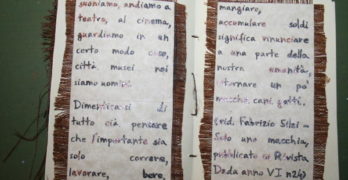 suoniamo, andiamo a
teatro, al cinema,
guardiamo in un
certo modo cose,
città, musei noi
siamo uomini.
Dimenticarsi di
tutto ciò pensare
che l'importante sia
solo correre,
lavorare, bere,
mangiare,
accumulare soldi
significa rinunciare
a una parte della
nostra umanità,
ritornare un po'
macchie, cani, gatti.
Fabrizio Silei -
Solo una macchia,
pubblicato su Rivista
Dada anno VI n24)